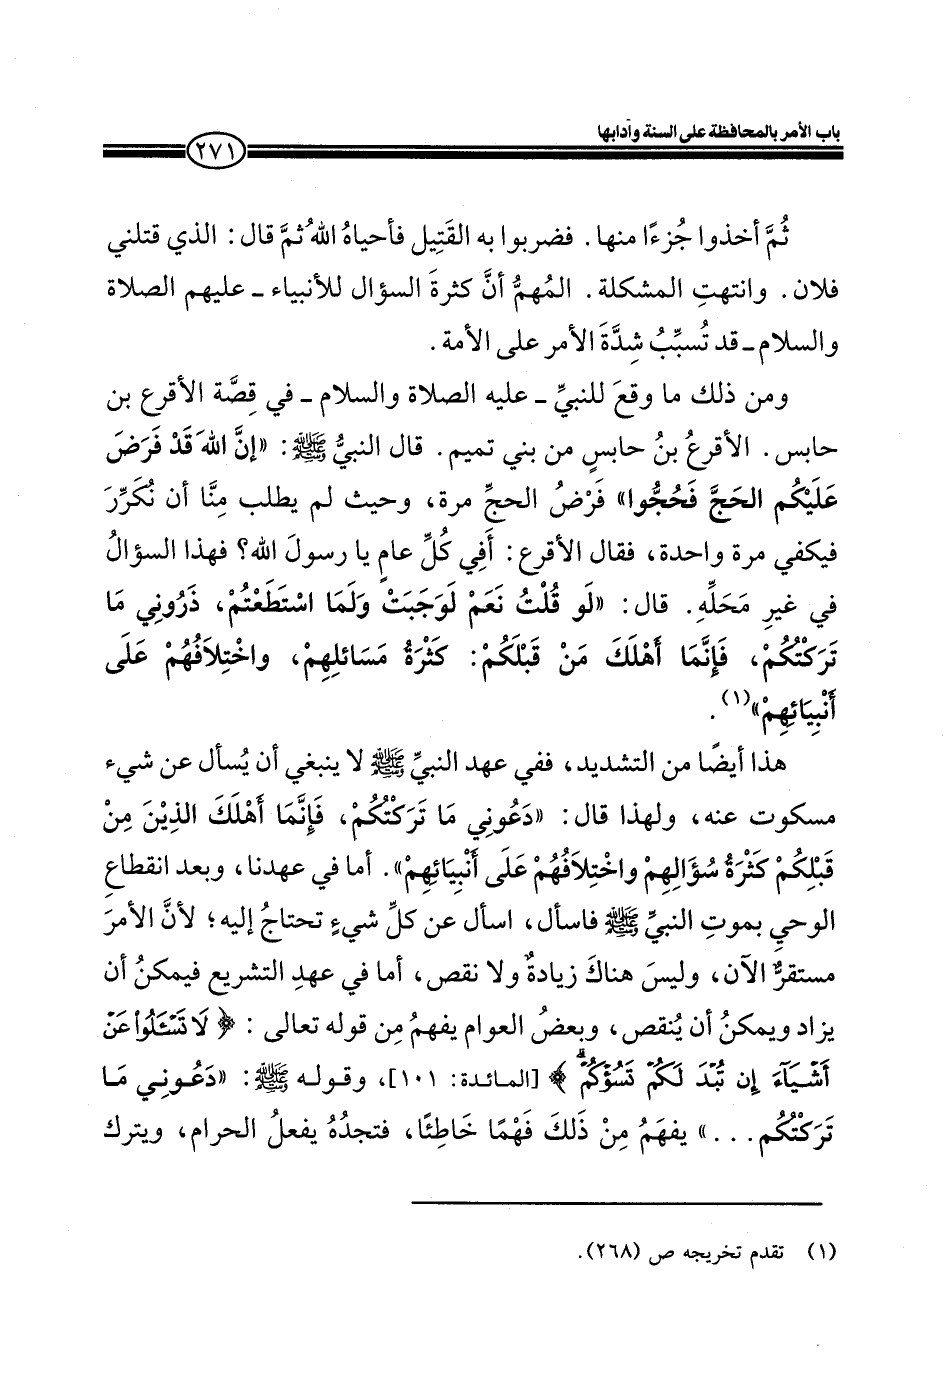 باب الأمر بالمحافظة على السنة وآدابها
٢٧١
ثُمَّ أخذوا جُزءًا منها. فضربوا به القَتِيل فأحياهُ اللهُ ثمَّ قال: الذي قتلني
فلان. وانتهتِ المشكلة. المُهمُّ أنَّ كثرةَ السؤال للأنبياء ـ عليهم الصلاة
والسلام ـ قد تُسبِّبُ شِدَّةَ الأمر على الأمة.
ومن ذلك ما وقعَ للنبيِّ ـ عليه الصلاة والسلام ـ في قِصَّة الأقرع بن
حابس. الأقرعُ بنُ حابسٍ من بني تميم. قال النبيُّ ﷺ: «إنَّ اللهَ قَدْ فَرَضَ
عَلَيْكُم الحَجَّ فَحُجُّوا» فَرْضُ الحجِّ مرة، وحيث لم يطلب مِنَّا أن نُكَرِّرَ
فيكفي مرة واحدة، فقال الأقرع: أَفِي كُلِّ عامٍ يا رسولَ الله؟ فهذا السؤالُ
في غيرِ مَحَلِّهِ. قال: «لَو قُلْتُ نَعَمْ لَوَجَبَتْ وَلَمَا اسْتَطَعْتُمْ، ذَرُونِي مَا
تَرَكْتُكُمْ، فَإِنَّمَا أَهْلَكَ مَنْ قَبْلَكُمْ: كَثْرَةُ مَسَائلِهِمْ، واخْتِلَافُهُمْ عَلَى
أَنْبِيَائِهِمْ»(١).
هذا أيضًا من التشديد، ففي عهد النبيِّ ﷺ لا ينبغي أن يُسأل عن شيء
مسكوت عنه، ولهذا قال: «دَعُونِي مَا تَرَكْتُكُمْ، فَإِنَّمَا أَهْلَكَ الذِيْنَ مِنْ
قَبْلِكُمْ كَثْرَةُ سُؤَالِهِمْ واخْتِلَافُهُمْ عَلَى أَنْبِيَائِهِمْ». أما في عهدنا، وبعد انقطاعِ
الوحيِ بموتِ النبيِّ ﷺ فاسأل، اسأل عن كلِّ شيءٍ تحتاجُ إليه؛ لأنَّ الأمرَ
مستقرٌّ الآن، وليسَ هناكَ زيادةٌ ولا نقص، أما في عهدِ التشريع فيمكنُ أن
يزاد ويمكنُ أن يُنقص، وبعضُ العوام يفهمُ مِن قوله تعالى: ﴿لَا تَسْـَٔلُوا۟ عَنْ
أَشْيَآءَ إِن تُبْدَ لَكُمْ تَسُؤْكُمْ ۖ﴾ [المائدة: ١٠١]، وقوله ﷺ: «دَعُونِي مَا
تَرَكْتُكُم...» يفهَمُ مِنْ ذَلكَ فَهْمًا خَاطِئًا، فتجدُهُ يفعلُ الحرام، ويترك
(١) تقدم تخريجه ص (٢٦٨).